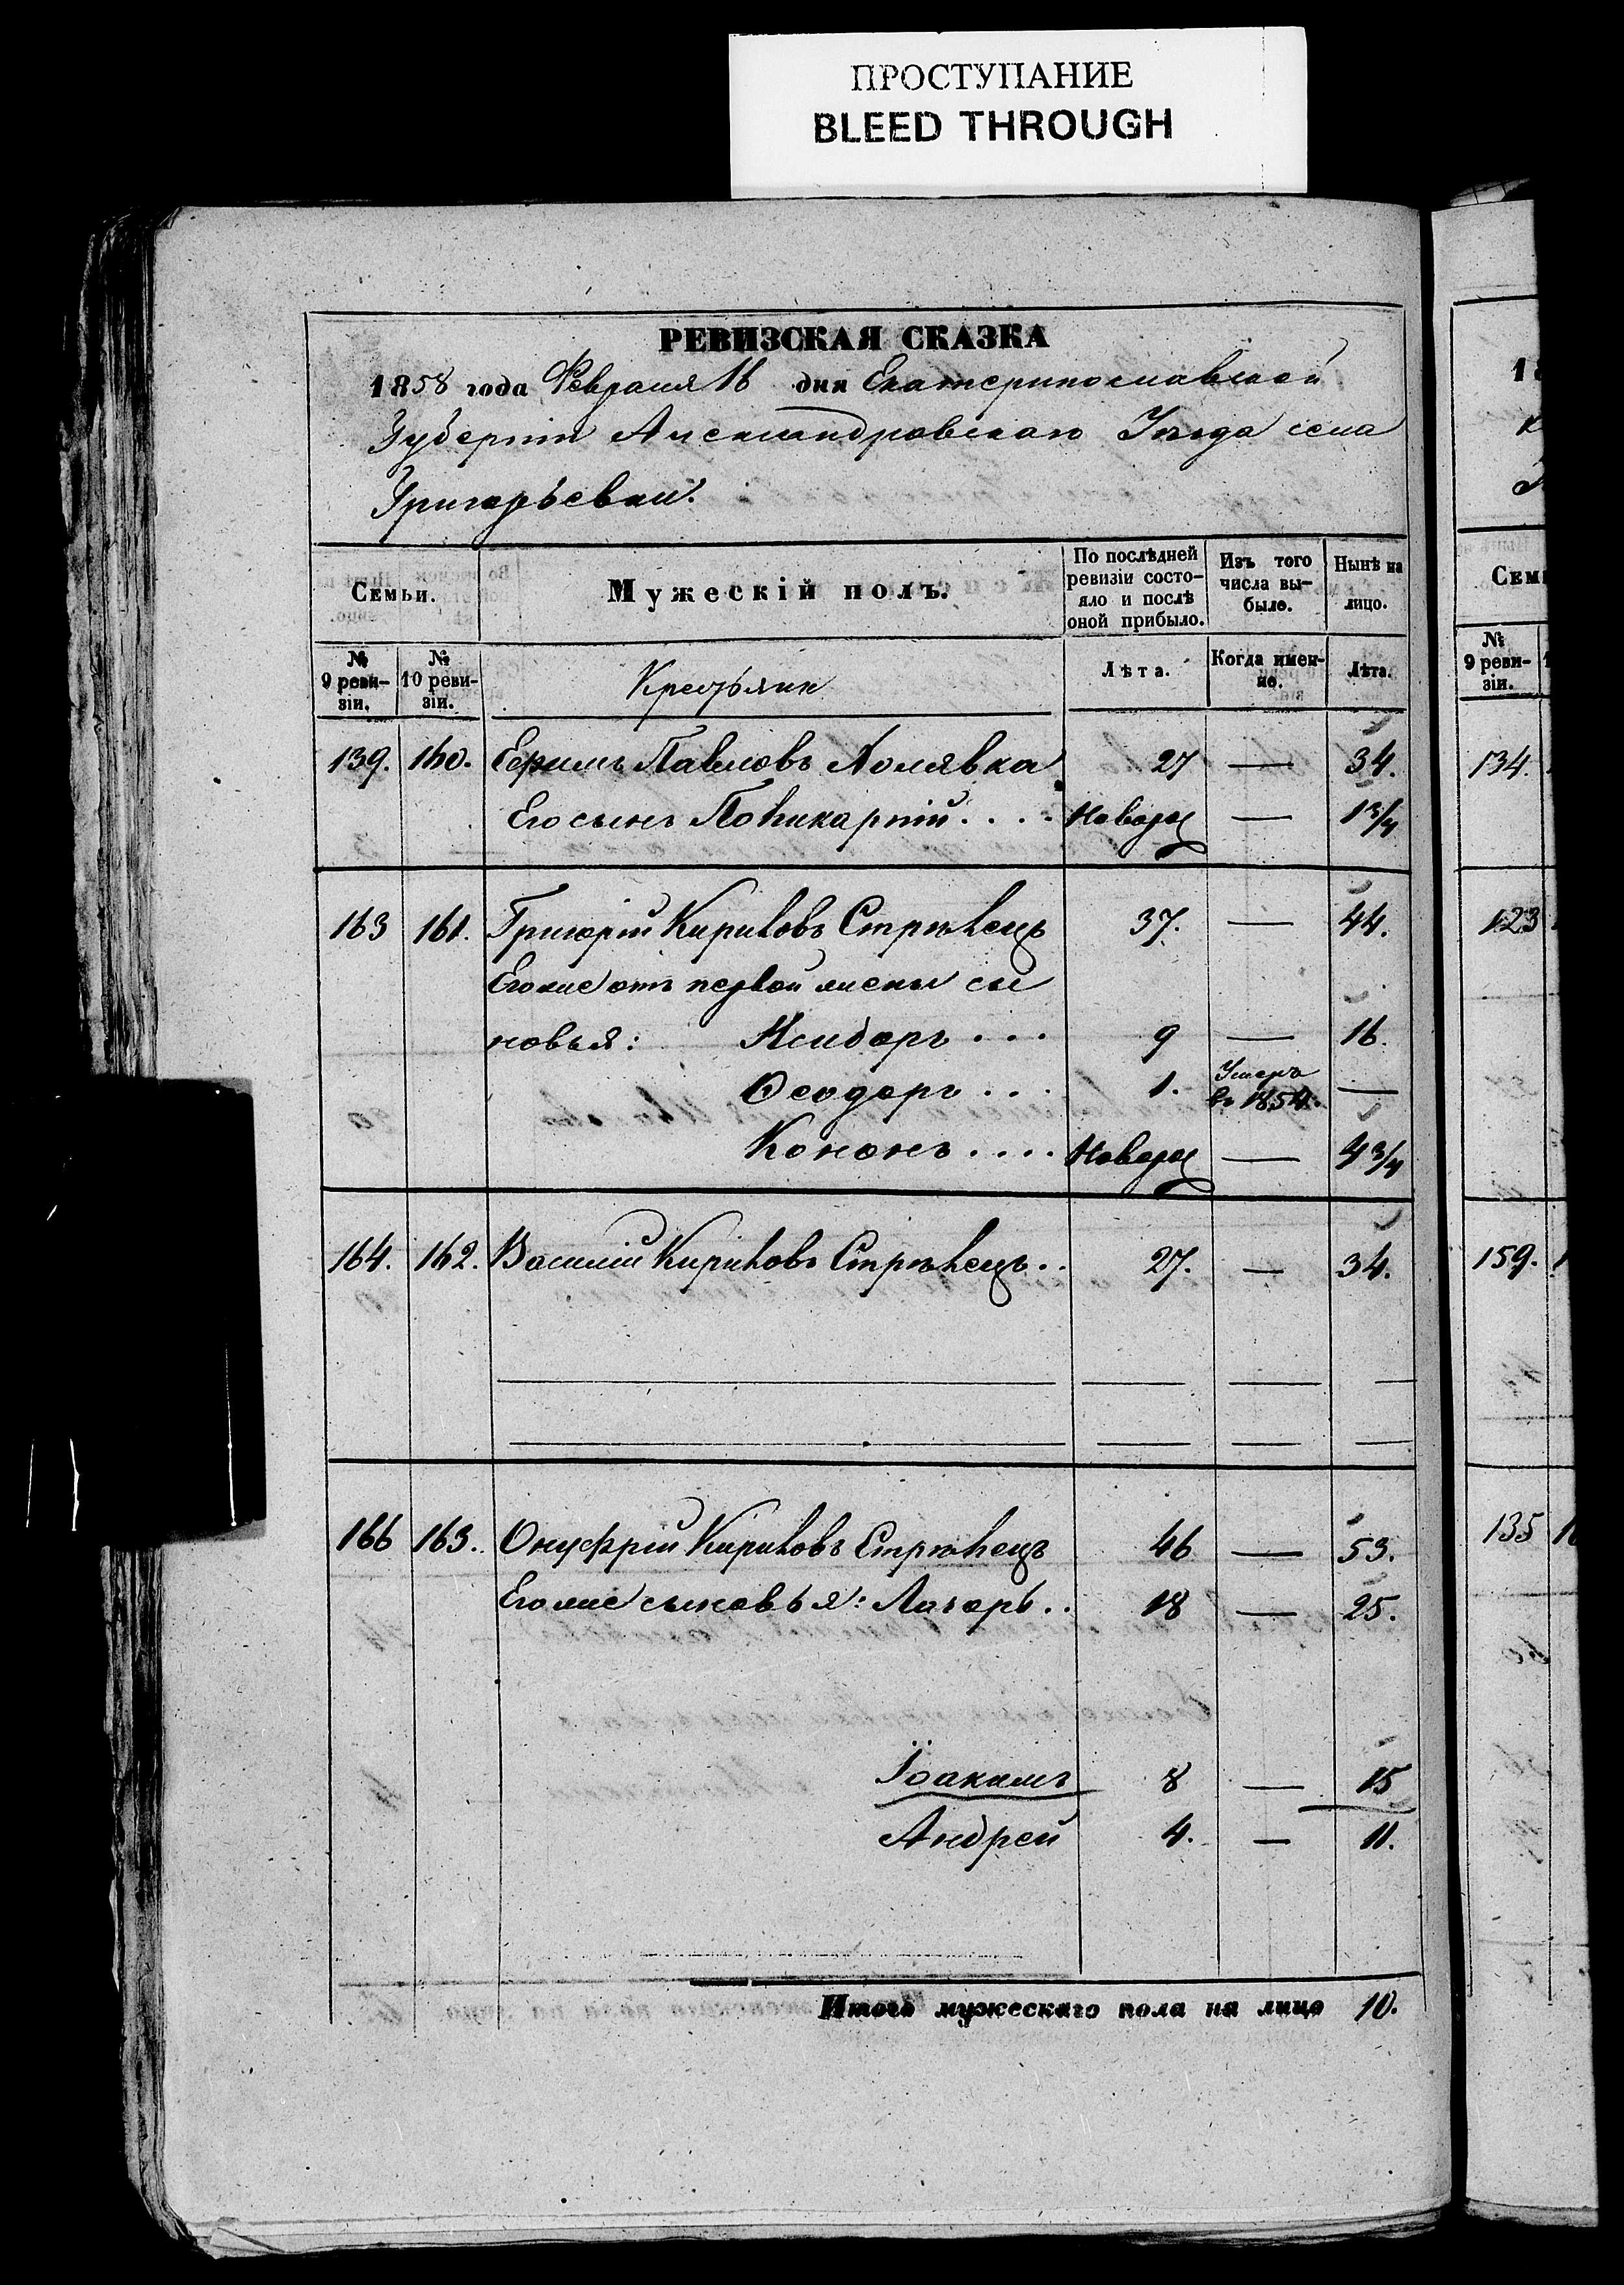 ПРОСТУПАНИЕ
BLEED THROUGH
РЕВИЗСКАЯ СКАЗКА
1858 года Февраля 16 дня Екатеринославской
Губерніи Александровскаго Уѣзда села
Григорьевки.
Семьи. Мужескій полъ. По послѣдней ревизіи состояло и послѣ оной прибыло. Изъ того числа выбыло. Нынѣ на лицо.
№ 9 ревизіи. № 10 ревизіи. Крестьяне Лѣта. Когда именно. Лѣта.
139. 160. Павловъ Холявка 27 — 34.
Его сынъ Поликарпій.... Новорож — 1 3/4
163 161. Григорій Кириловъ Стрѣлецъ 37. — 44.
Его же отъ первой жены сы
новья: Исидоръ... 9 — 16.
Ѳеодоръ... 1. Умеръ въ 1854. —
Кононъ.... Новорож — 4 3/4
164. 162. Василій Кириловъ Стрѣлецъ.. 27. — 34.
166 163. Онуфрій Кириловъ Стрѣлецъ 46 — 53.
Его же сыновья: Лазарь.. 18 — 25.
Іоакимъ 8 — 15
Андрей 4. — 11.
Итого мужескаго пола на лицо 10.
18
Семь
№ 9 ревизіи.
134.
123
159.
135